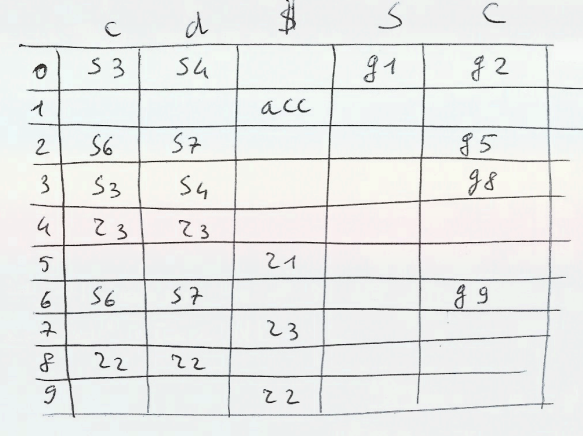 c d $ S C
0 s3 s4 g1 g2
1 acc
2 s6 s7 g5
3 s3 s4 g8
4 r3 r3
5 r1
6 s6 s7 g9
7 r3
8 r2 r2
9 r2